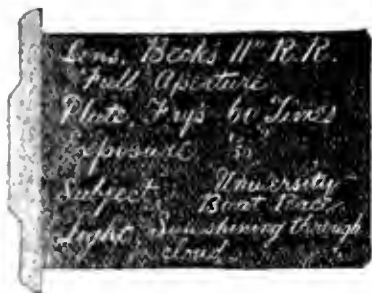 Lens, Beck's 11" R.R.
Full Aperture
Plate, Fry's 60 Times
Exposure 1/50"
Subject, University
Boat Race
Light, Sun shining through
cloud